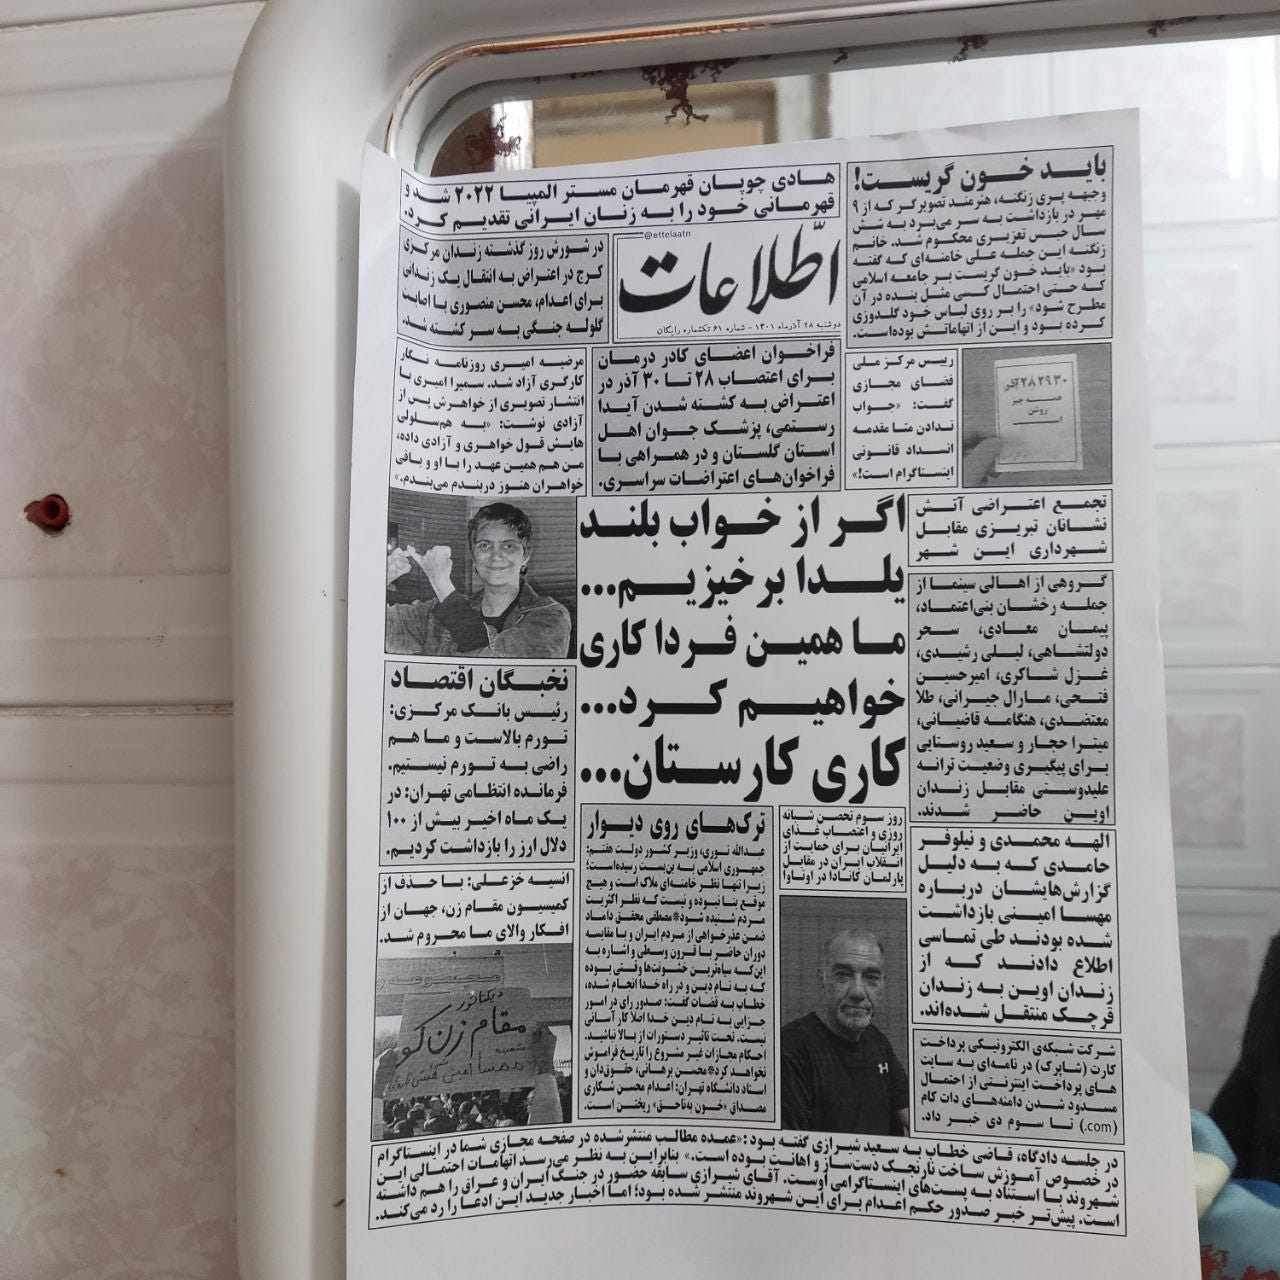 هادی چوپان قهرمان مستر المپیا ۲۰۲۲ شد و
قهرمانی خود را به زنان ایرانی تقدیم کرد.
باید خون گریست!
وجیهه پری زنگنه، هنرمند تصویرگر که از ۹
مهر در بازداشت به سر می‌برد به شش
سال حبس تعزیری محکوم شد. خانم
زنگنه این جمله علی خامنه‌ای که گفته
بود «باید خون گریست بر جامعه اسلامی
که حتی احتمال کسی مثل بنده در آن
مطرح شود» را بر روی لباس خود گلدوزی
کرده بود و این از اتهاماتش بوده‌است.
@ettelaatn
اطّلاعات
دوشنبه ۲۸ آذرماه ۱۴۰۱ - شماره ۶۱ تکشماره رایگان
در شورش روز گذشته زندان مرکزی
کرج در اعتراض به انتقال یک زندانی
برای اعدام، محسن منصوری با اصابت
گلوله جنگی به سر کشته شد.
مرضیه امیری روزنامه نگار
کارگری آزاد شد. سمیرا امیری با
انتشار تصویری از خواهرش پس از
آزادی نوشت: «به هم‌سلولی
هایش قول خواهری و آزادی داده،
من هم همین عهد را با او و باقی
خواهران هنوز دربندم می‌بندم.»
فراخوان اعضای کادر درمان
برای اعتصاب ۲۸ تا ۳۰ آذر در
اعتراض به کشته شدن آیدا
رستمی، پزشک جوان اهل
استان گلستان و در همراهی با
فراخوان‌های اعتراضات سراسری.
رییس مرکز ملی
فضای مجازی
گفت: «جواب
ندادن متا مقدمه
انسداد قانونی
اینستاگرام است!»
۲۸ ۲۹ ۳۰ آذر
همه چیز
روشن
است
تجمع اعتراضی آتش
نشانان تبریزی مقابل
شهرداری این شهر
اگر از خواب بلند
یلدا برخیزیم...
ما همین فردا کاری
خواهیم کرد...
کاری کارستان...
گروهی از اهالی سینما از
جمله رخشان بنی‌اعتماد،
پیمان معادی، سحر
دولتشاهی، لیلی رشیدی،
غزل شاکری، امیرحسین
فتحی، مارال جیرانی، طلا
معتضدی، هنگامه قاضیانی،
میترا حجار و سعید روستایی
برای پیگیری وضعیت ترانه
علیدوستی مقابل زندان
اوین حاضر شدند.
نخبگان اقتصاد
رئیس بانک مرکزی:
تورم بالاست و ما هم
راضی به تورم نیستیم.
فرمانده انتظامی تهران: در
یک ماه اخیر بیش از ۱۰۰
دلال ارز را بازداشت کردیم.
ترک‌های روی دیوار
عبدالله نوری، وزیر کشور دولت هفتم:
جمهوری اسلامی به بن‌بست رسیده‌است؛
زیرا تنها نظر خامنه‌ای ملاک است و هیچ
موقع بنا نبوده و نیست که نظر اکثریت
مردم شنیده شود*مصطفی محقق داماد
ضمن عذرخواهی از مردم ایران و با مقایسه
دوران حاضر با قرون وسطی و اشاره به
این‌که سیاه‌ترین خشونت‌ها وقتی بوده
که به نام دین و در راه خدا انجام شده،
خطاب به قضات گفت: صدور رای در امور
جزایی به نام دین خدا اصلا کار آسانی
نیست. تحت تاثیر دستورات از بالا نباشید.
احکام مجازات غیر مشروع را تاریخ فراموش
نخواهد کرد*محسن برهانی، حقوق‌دان و
استاد دانشگاه تهران: اعدام محسن شکاری
مصداق «خون به‌ناحق» ریختن است.
روز سوم تحصن شبانه
روزی و اعتصاب غذای
ایرانیان برای حمایت از
انقلاب ایران در مقابل
پارلمان کانادا در اوتاوا
الهه محمدی و نیلوفر
حامدی که به دلیل
گزارش‌هایشان درباره
مهسا امینی بازداشت
شده بودند طی تماسی
اطلاع دادند که از
زندان اوین به زندان
قرچک منتقل شده‌اند.
انسیه خزعلی: با حذف از
کمیسیون مقام زن، جهان از
افکار والای ما محروم شد.
دیکتاتور
مقام زن کو
مهسا امینی
شرکت شبکه‌ی الکترونیکی پرداخت
کارت (شاپرک) در نامه‌ای به سایت
های پرداخت اینترنتی از احتمال
مسدود شدن دامنه‌های دات کام
(.com) تا سوم دی خبر داد.
در جلسه دادگاه، قاضی خطاب به سعید شیرازی گفته بود :«عمده مطالب منتشرشده در صفحه مجازی شما در اینستاگرام
در خصوص آموزش ساخت نارنجک دست‌ساز و اهانت بوده است.» بنابراین به نظر می‌رسد اتهامات احتمالی این
شهروند با استناد به پست‌های اینستاگرامی اوست. آقای شیرازی سابقه حضور در جنگ ایران و عراق را هم داشته
است. پیش‌تر خبر صدور حکم اعدام برای این شهروند منتشر شده بود؛ اما اخبار جدید این ادعا را رد می‌کند.